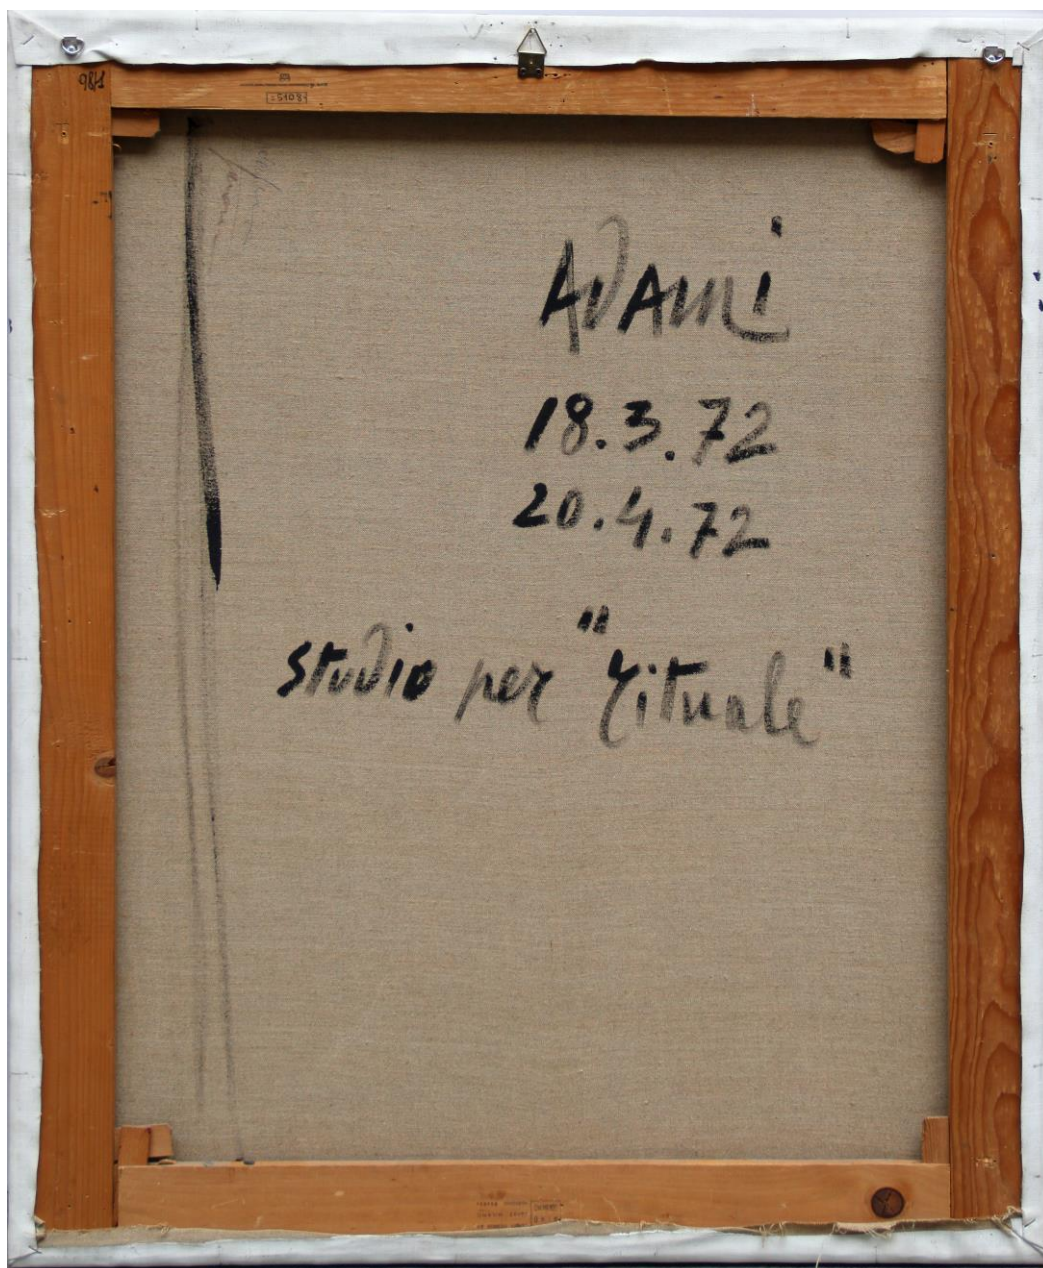 ADAMI
18.3.72
20.4.72
studio per "rituale"